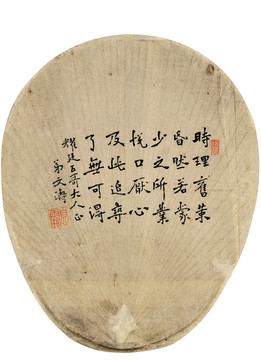 時理舊業
昏然若蒙
少之所業
悅口厭心
及此追尋
了無可得
耀廷五哥大人正
弟文濤